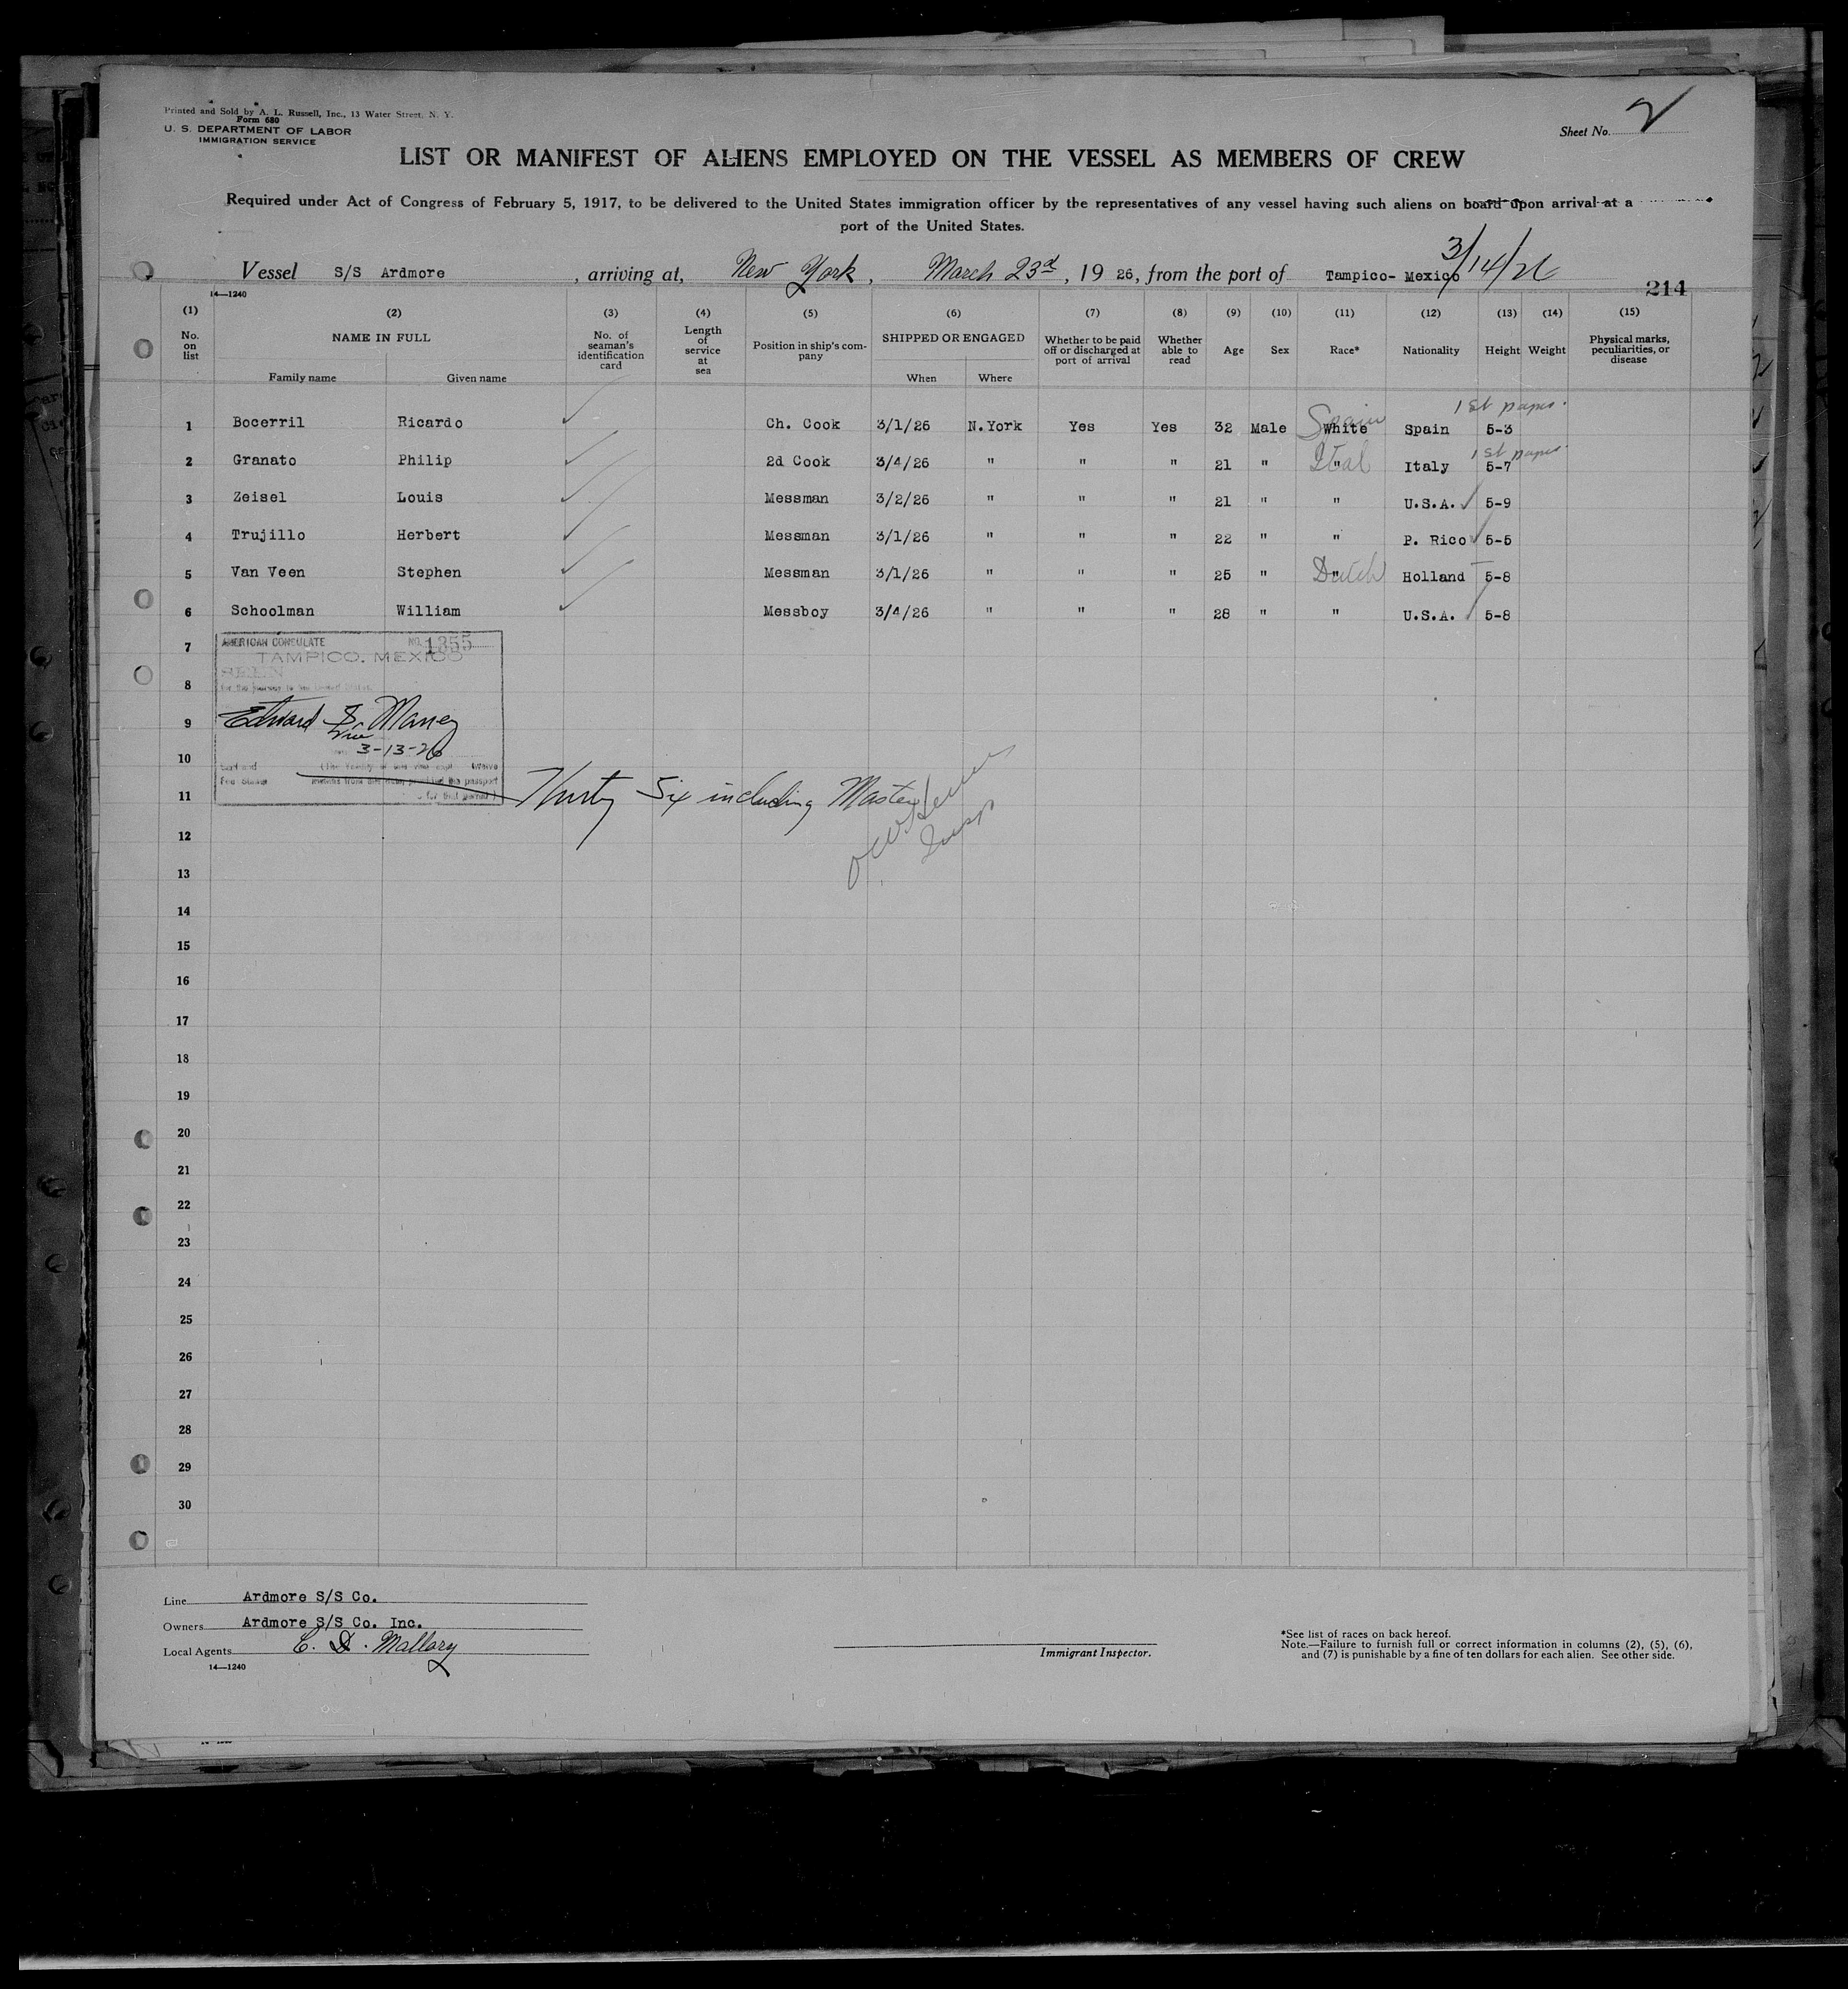 Printed and Sold by A. L. Russell, Inc., 13 Water Street, N. Y.
Form 680
U. S. DEPARTMENT OF LABOR
IMMIGRATION SERVICE
Sheet No. 2
LIST OR MANIFEST OF ALIENS EMPLOYED ON THE VESSEL AS MEMBERS OF CREW
Required under Act of Congress of February 5, 1917, to be delivered to the United States immigration officer by the representatives of any vessel having such aliens on board upon arrival at a
port of the United States.
Vessel S/S Ardmore, arriving at, New York, March 23d, 19 26, from the port of Tampico- Mexico 3/14/26
14—1240
214
(1) (2) (3) (4) (5) (6) (7) (8) (9) (10) (11) (12) (13) (14) (15)
No. on list NAME IN FULL No. of seaman's identification card Length of service at sea Position in ship's company SHIPPED OR ENGAGED Whether to be paid off or discharged at port of arrival Whether able to read Age Sex Race* Nationality Height Weight Physical marks, peculiarities, or disease
Family name Given name When Where
1st paper.
1 Bocerril Ricardo Ch. Cook 3/1/26 N.York Yes Yes 32 Male White Spain Spain 5-3
1st paper.
2 Granato Philip 2d Cook 3/4/26 " " " 21 " " Ital Italy 5-7
3 Zeisel Louis Messman 3/2/26 " " " 21 " " U.S.A. 5-9
4 Trujillo Herbert Messman 3/1/26 " " " 22 " " P. Rico 5-5
5 Van Veen Stephen Messman 3/1/26 " " " 25 " " Dutch Holland 5-8
6 Schoolman William Messboy 3/4/26 " " " 28 " " U.S.A. 5-8
7
AMERICAN CONSULATE NO. 1355
TAMPICO. MEXICO
SEEN
8
for the journey to the United States.
9
Edward S. Maney
Vice
3-13-26
10
11
Thirty Six including Master
12
13
14
15
16
17
18
19
20
21
22
23
24
25
26
27
28
29
30
Line Ardmore S/S Co.
Owners Ardmore S/S Co. Inc.
Local Agents C. D. Mallory
14—1240
Immigrant Inspector.
*See list of races on back hereof.
Note.—Failure to furnish full or correct information in columns (2), (5), (6),
and (7) is punishable by a fine of ten dollars for each alien. See other side.